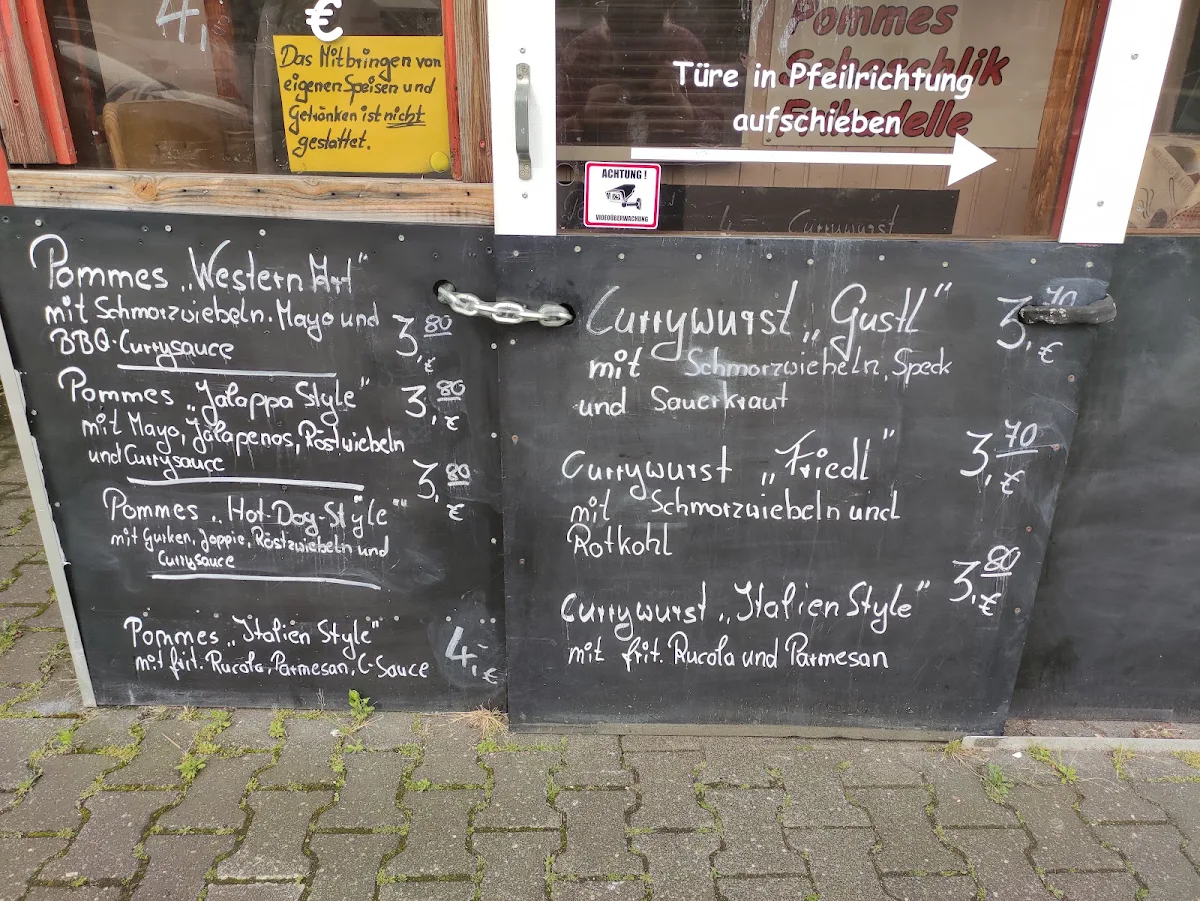 4,
€
Das Mitbringen von
eigenen Speisen und
Getränken ist nicht
gestattet.
Pommes
Schaschlik
Frikadelle
Türe in Pfeilrichtung
aufschieben
ACHTUNG !
VIDEOÜBERWACHUNG
Currywurst
Pommes „Western Art"
mit Schmorzwiebeln. Mayo und
BBQ-Currysauce
3,80 €
Pommes „Jalappa Style"
mit Mayo, Jalapenos, Röstwiebeln
und Currysauce
3,80 €
Pommes „Hot-Dog-Style"
mit Gurken, Joppie, Röstzwiebeln und
Currysauce
3,80 €
Pommes „Italien Style"
mit frit. Rucola, Parmesan, C-Sauce
4,- €
Currywurst „Gustl"
mit Schmorzwiebeln, Speck
und Sauerkraut
3,70 €
Currywurst „Friedl"
mit Schmorzwiebeln und
Rotkohl
3,70 €
Currywurst „Italien Style"
mit frit. Rucola und Parmesan
3,80 €